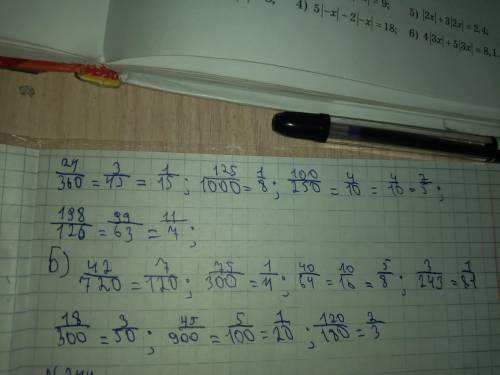 4) 5|−x|−2|−x|=18; 5) |2x|+3|2x|=2,4;
6) 4|3x|+5|3x|=8,1.
24/360 = 3/45 = 1/15; 125/1000 = 1/8; 100/250 = 4/10 = 4/10 = 2/5;
198/126 = 99/63 = 11/7;
Б) 42/720 = 7/120; 75/300 = 1/4; 40/64 = 10/16 = 5/8; 3/243 = 1/81
18/300 = 3/50; 45/900 = 5/100 = 1/20; 120/180 = 2/3